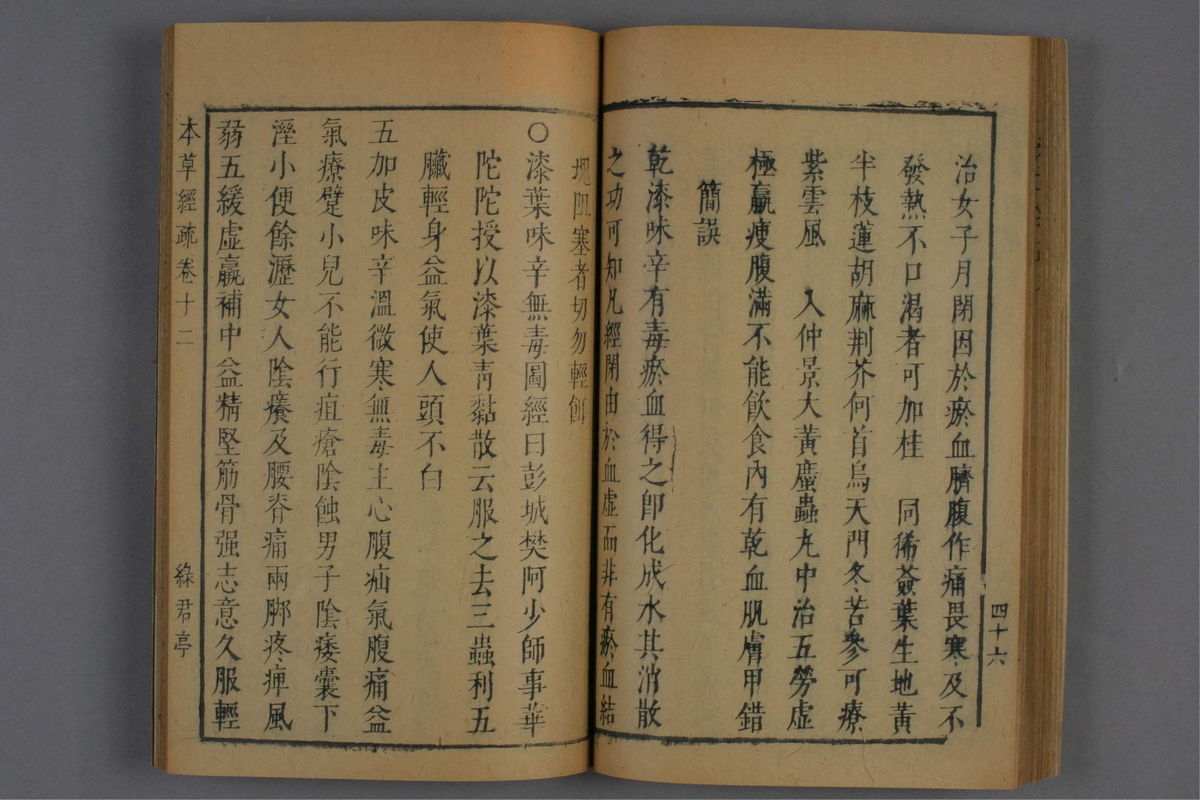 治女子月閉因於瘀血臍腹作痛畏寒及不
發熱不口渴者可加桂　同狶薟葉生地黃
半枝蓮胡麻荆芥何首烏天門冬苦參可療
紫雲風　入仲景大黃䗪蟲丸中治五勞虛
極羸瘦腹滿不能飲食內有乾血肌膚甲錯
簡誤
乾漆味辛有毒瘀血得之即化成水其消散
之功可知凡經閉由於血虛而非有瘀血結
四十六
塊阻塞者切勿輕餌
〇漆葉味辛無毒圖經曰彭城樊阿少師事華
陀陀授以漆葉青黏散云服之去三蟲利五
臟輕身益氣使人頭不白
五加皮味辛溫微寒無毒主心腹疝氣腹痛益
氣療躄小兒不能行疽瘡陰蝕男子陰痿囊下
溼小便餘瀝女人陰癢及腰脊痛兩脚疼痺風
弱五緩虛羸補中益精堅筋骨强志意久服輕
本草經疏卷十二
綠君亭